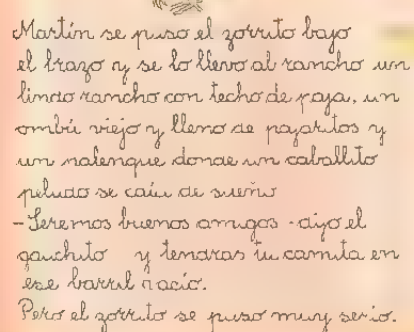 Martín se puso el zorrito bajo
el brazo y se lo llevo al rancho un
lindo rancho con techo de paja, un
ombú viejo y lleno de pajaritos y
un palenque donde un caballito
peludo se caía de sueño
-Seremos buenos amigos -dijo el
gauchito y tendras tu camita en
ese barril vacio.
Pero el zorrito se puso muy serio.